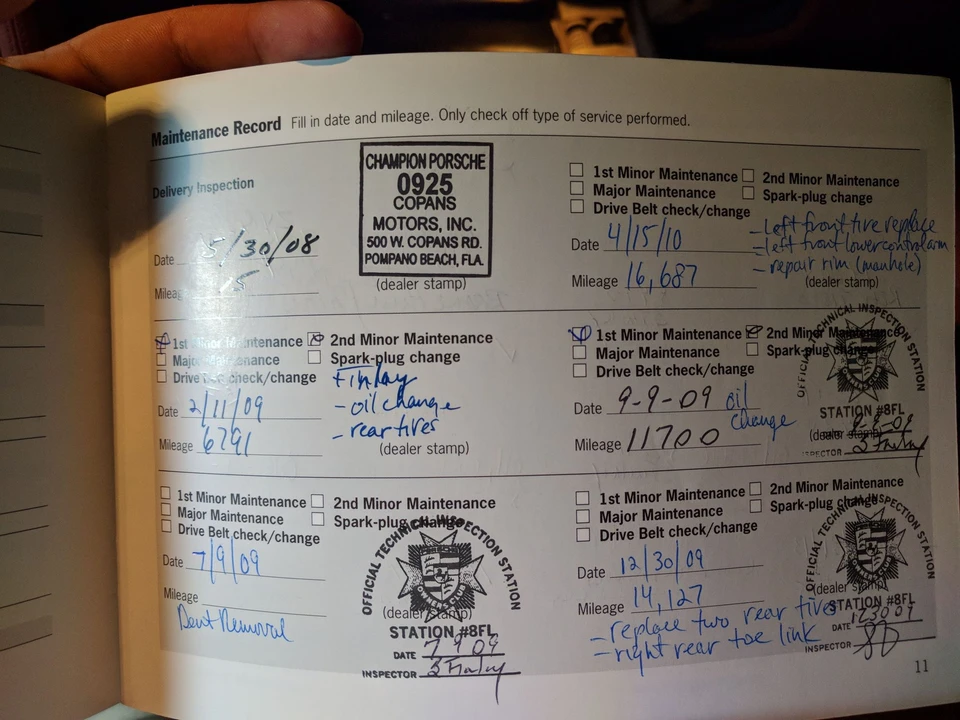 Maintenance Record Fill in date and mileage. Only check off type of service performed.
Delivery Inspection
Date 5/30/08
Mileag 5
CHAMPION PORSCHE
0925
COPANS
MOTORS, INC.
500 W. COPANS RD.
POMPANO BEACH, FLA.
(dealer stamp)
1st Minor Maintenance 2nd Minor Maintenance
Major Maintenance Spark-plug change
Drive Belt check/change
Date 4/15/10
Mileage 16,687
- Left front tire replace
- left front lower control arm
- repair rim (manhole)
(dealer stamp)
1st Minor Maintenance 2nd Minor Maintenance
Major Maintenance Spark-plug change
Drive Belt check/change
Date 2/11/09
Mileage 6791
Finlay
- oil change
- rear tires
(dealer stamp)
1st Minor Maintenance 2nd Minor Maintenance
Major Maintenance Spark-plug change
Drive Belt check/change
Date 9-9-09 oil
change
Mileage 11700
OFFICIAL TECHNICAL INSPECTION STATION
STATION #8FL
(dealer stamp)
9-9-09
INSPECTOR
1st Minor Maintenance 2nd Minor Maintenance
Major Maintenance Spark-plug change
Drive Belt check/change
Date 7/9/09
Mileage
Dent Removal
OFFICIAL TECHNICAL INSPECTION STATION
(dealer stamp)
STATION #8FL
DATE 7 9 09
INSPECTOR
1st Minor Maintenance 2nd Minor Maintenance
Major Maintenance Spark-plug change
Drive Belt check/change
Date 12/30/09
Mileage 14,127
- replace two rear tires
- right rear toe link
OFFICIAL TECHNICAL INSPECTION STATION
(dealer stamp)
STATION #8FL
DATE 123009
INSPECTOR
11